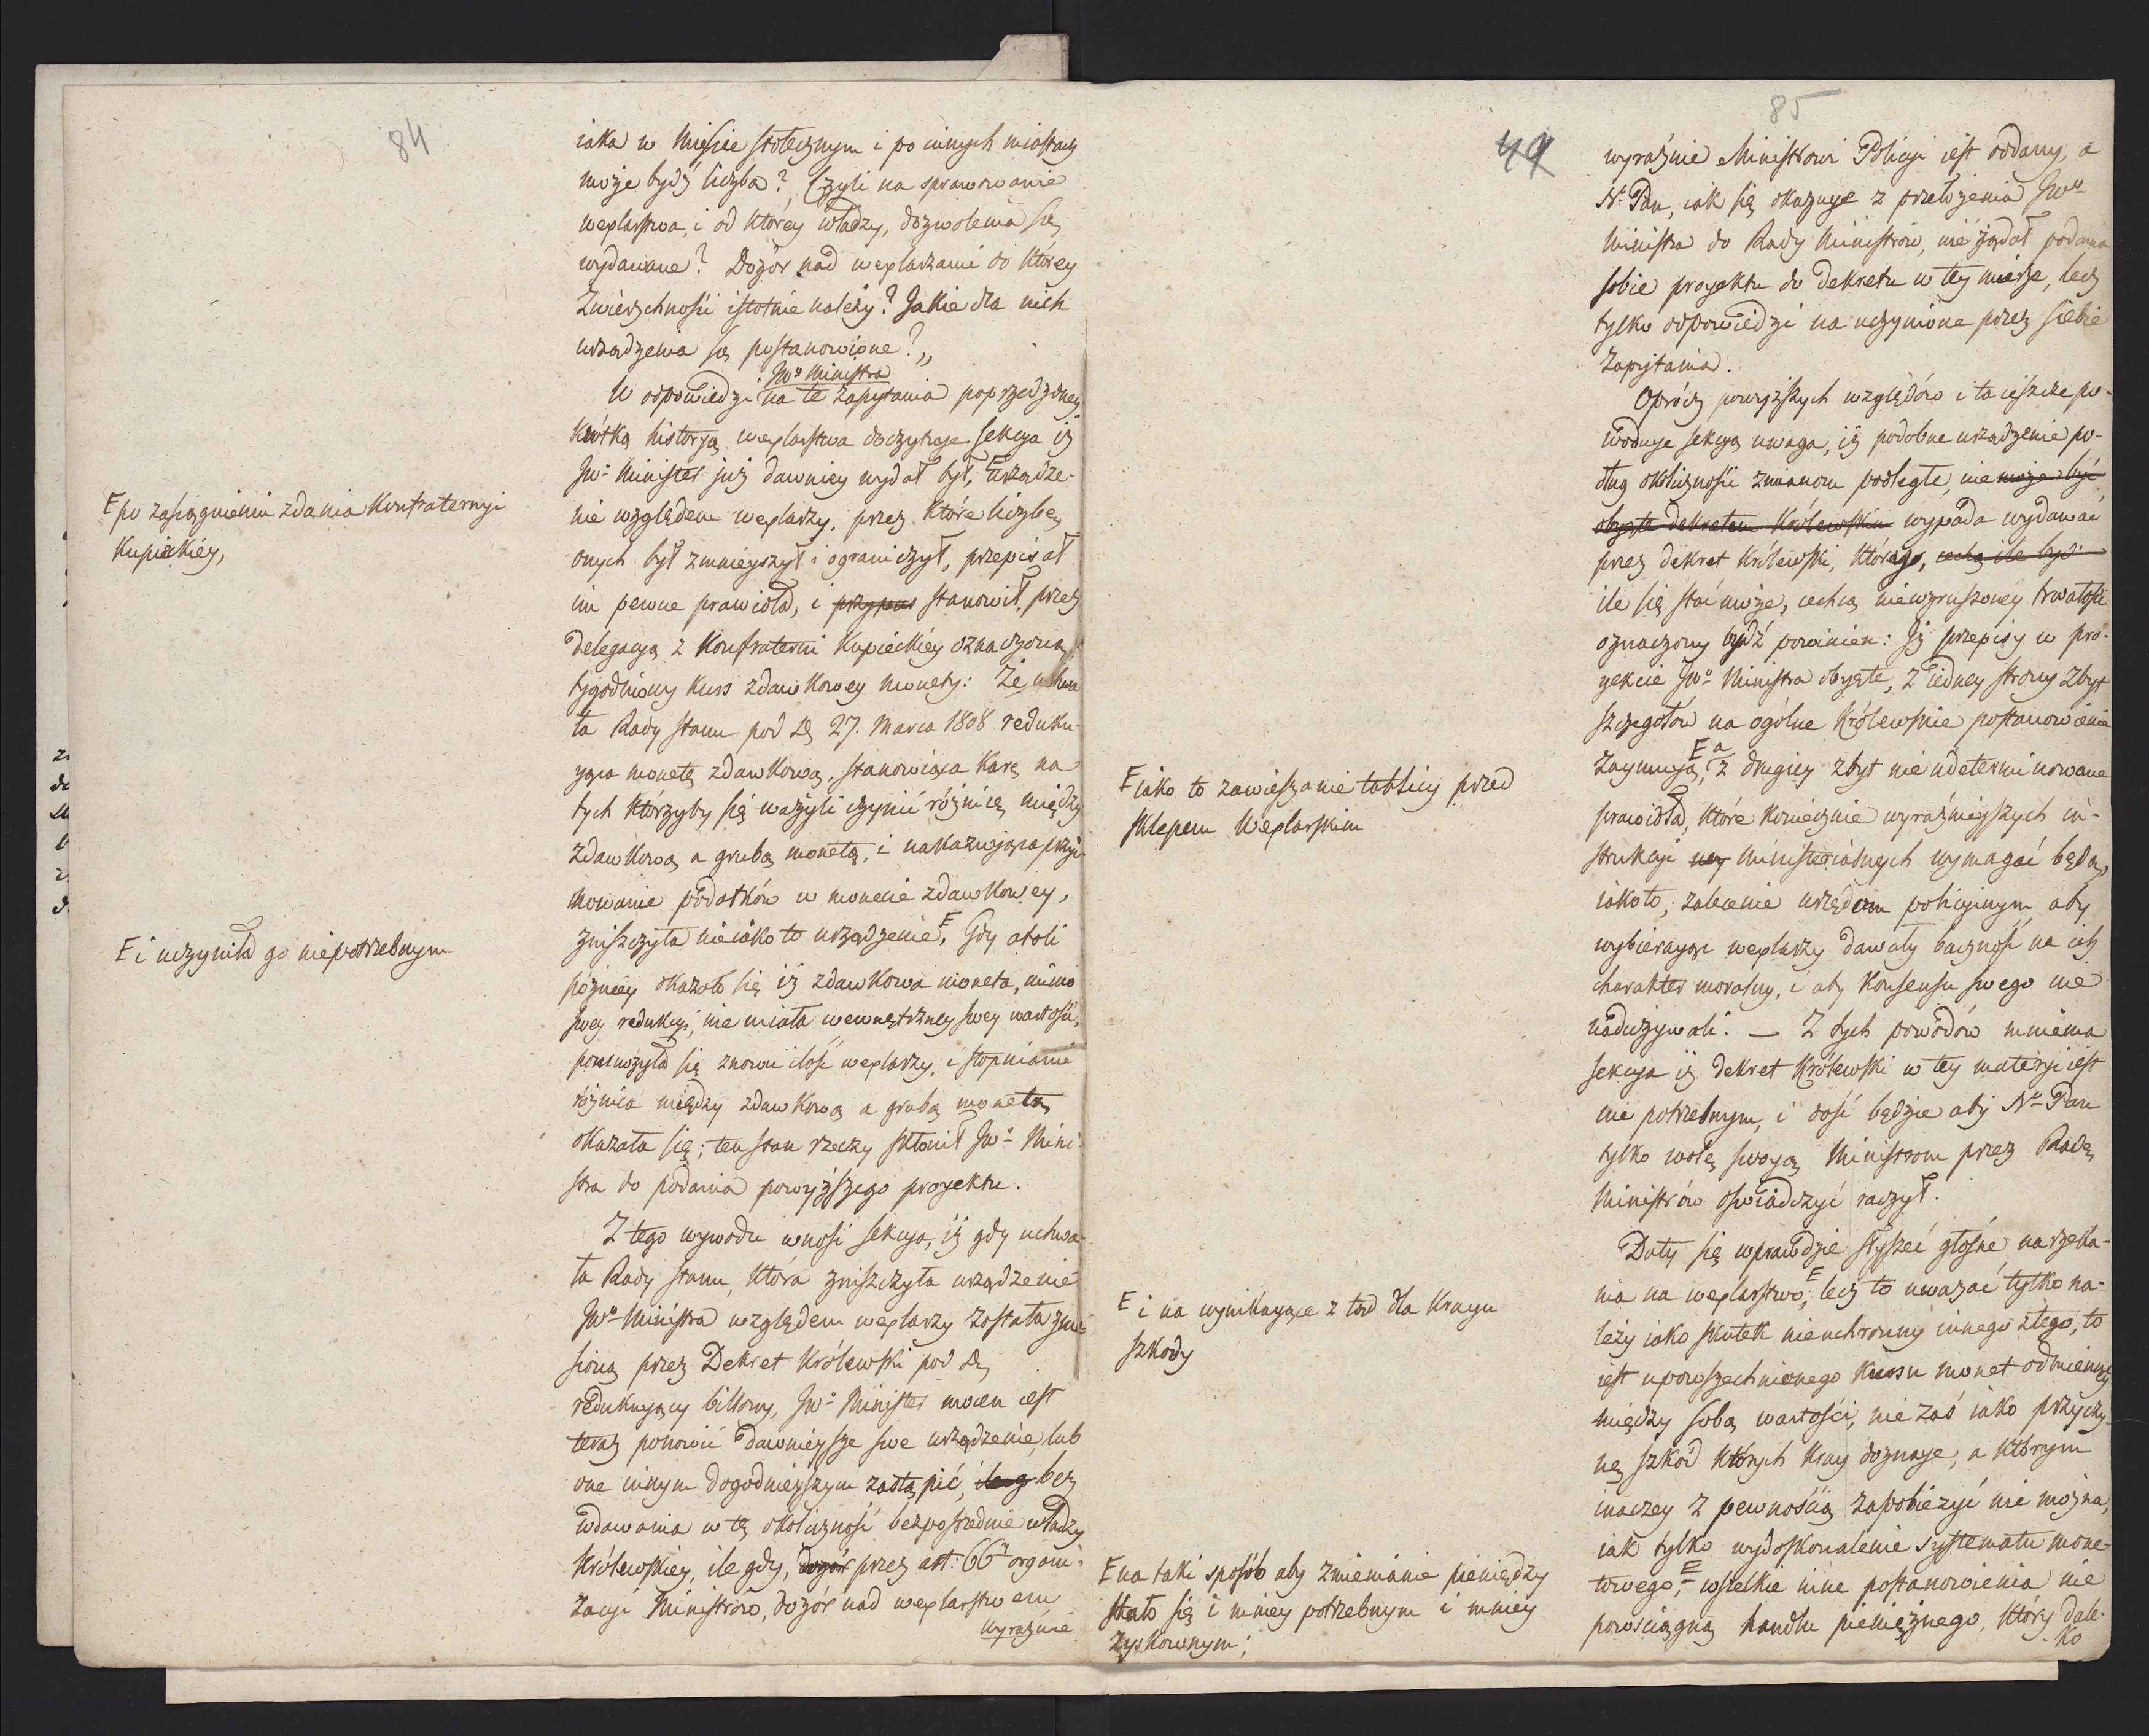 84
iaka w Mieście stołecznym i po innych miastach
może bydź liczba? Czyli na sprawowanie
wexlarstwa, i od którey władzy, dozwolenia są
wydawane? Dozór nad wexlarzami do którey
Zwierzchności istotnie należy? Jakie dla nich
urządzenia są postanowione?„
JWo Ministra
W odpowiedzi na te zapytania poprzedzoney
krótką historyą wexlarstwa doczytuje sekcya iż
JW. Minister już dawniey wydał był, E urządze-
nie względem wexlarzy, przez które liczbę
onych był zmnieyszył i ograniczył, przepisał
im pewne prawidła, i przypus stanowił, przez
delegacyą z Konfraterni Kupieckiéy oznaczoną,
tygodniowy kurs zdawkowey monety: Że uchwa
ła Rady stanu pod D. 27. Marca 1808 reduku-
yąca monetę zdawkową, stanowiąca karę na
tych którzyby się ważyli czynić różnicę między
zdawkową a grubą monetą, i nakazuiąca przyi-
mowanie podatków w monecie zdawkowey,
zniszczyła nieiako to urządzenie E. Gdy atoli
późniey okazało się iż zdawkowa moneta, mimo
swey redukcyi, nie miała wewnętrzney swey wartości,
pomnożyła się znowu ilość wexlarzy, i stopniami
różnica między zdawkową a grubą monetą
okazała się; ten stan rzeczy skłonił JWo Mini-
stra do podania powyższego proyektu.
Z tego wywodu wnosi sekcya, iż gdy uchwa-
ła Rady stanu, która zniszczyła urządzenie
JWo Ministra względem wexlarzy została znie-
sioną przez Dekret Królewski pod D.
redukuyący billony, JW. Minister mocen iest
teraz ponowić dawnieysze swe urządzenie, lub
one innym dogodnieyszym zastąpić, bez
wdawania w tę okoliczność bezpośrednie władzy
Królewskiey, ile gdy, dozór przez art: 66y organi-
zacyi Ministrów, dozór nad wexlarstwem
wyraźnie
E po zasiągnieniu zdania Konfraternyi
Kupieckiéy,
E i uczyniła go niepotrzebnym
49
85
wyraźnie Ministrowi Policyi iest oddany, a
N. Pan, iak się okazuye z przełożenia JWo
Ministra do Rady Ministrów, nie żądał podania
sobie proyektu do Dekretu w tey mierze, lecz
tylko odpowiedzi na uczynione przez siebie
zapytania.
Oprócz powyższych względów i ta ieszcze po-
woduye sekcyą uwaga, iż podobne urządzenie po-
dług okoliczności zmianom podległe, nie może być
obięte dekretem Królewskim wypada wydawać
przez dekret Królewski, którego, cechą ile być
ile się stać może, cechą niewzruszoney trwałości
oznaczony bydź powinien: Iż przepisy w pro-
yekcie JWo Ministra obyęte, z iedney strony zbyt
szczegołow na ogólne Królewskie postanowienie
zaymuyą, E a z drugiey zbyt nieudeterminowane
prawidła, które koniecznie wyraźnieyszych in-
strukcyi Ministerialnych wymagać będą,
iakoto; zalecenie urzędom policyinym, aby
wybieraiąc wexlarzy dawały baczność na ich
charakter moralny, i aby Konsensu swego nie
nadużywali. — Z tych powodów mniema
sekcya iż dekret Królewski w tey materyi iest
nie potrzebnym, i dość będzie aby Ny Pan
tylko wolę swoyą Ministrom przez Radę
Ministrów oświadczyć raczył.
Dały się wprawdzie słyszeć głośne narzeka-
nia na wexlarstwo, E lecz to uważać tylko na-
leży iako skutek nieuchronny innego złego, to
iest upowszechnionego kursu monet odmienney
między sobą wartości, nie zaś iako przyczy-
nę szkód których kray doznaye, a którym
inaczey z pewnością zapobieżyć nie można,
iak tylko wydoskonalenie systematu mone-
towego; E wszelkie inne postanowienia nie
powściągną handlu pieniężnego, który dale-
ko
E iako to zawieszanie tablicy przed
sklepem Wexlarskim
E i na wynikayące z tąd dla Krayu
szkody
E na taki sposób aby zmienianie pieniędzy
stało się i mniey potrzebnym i mniey
zyskownym;